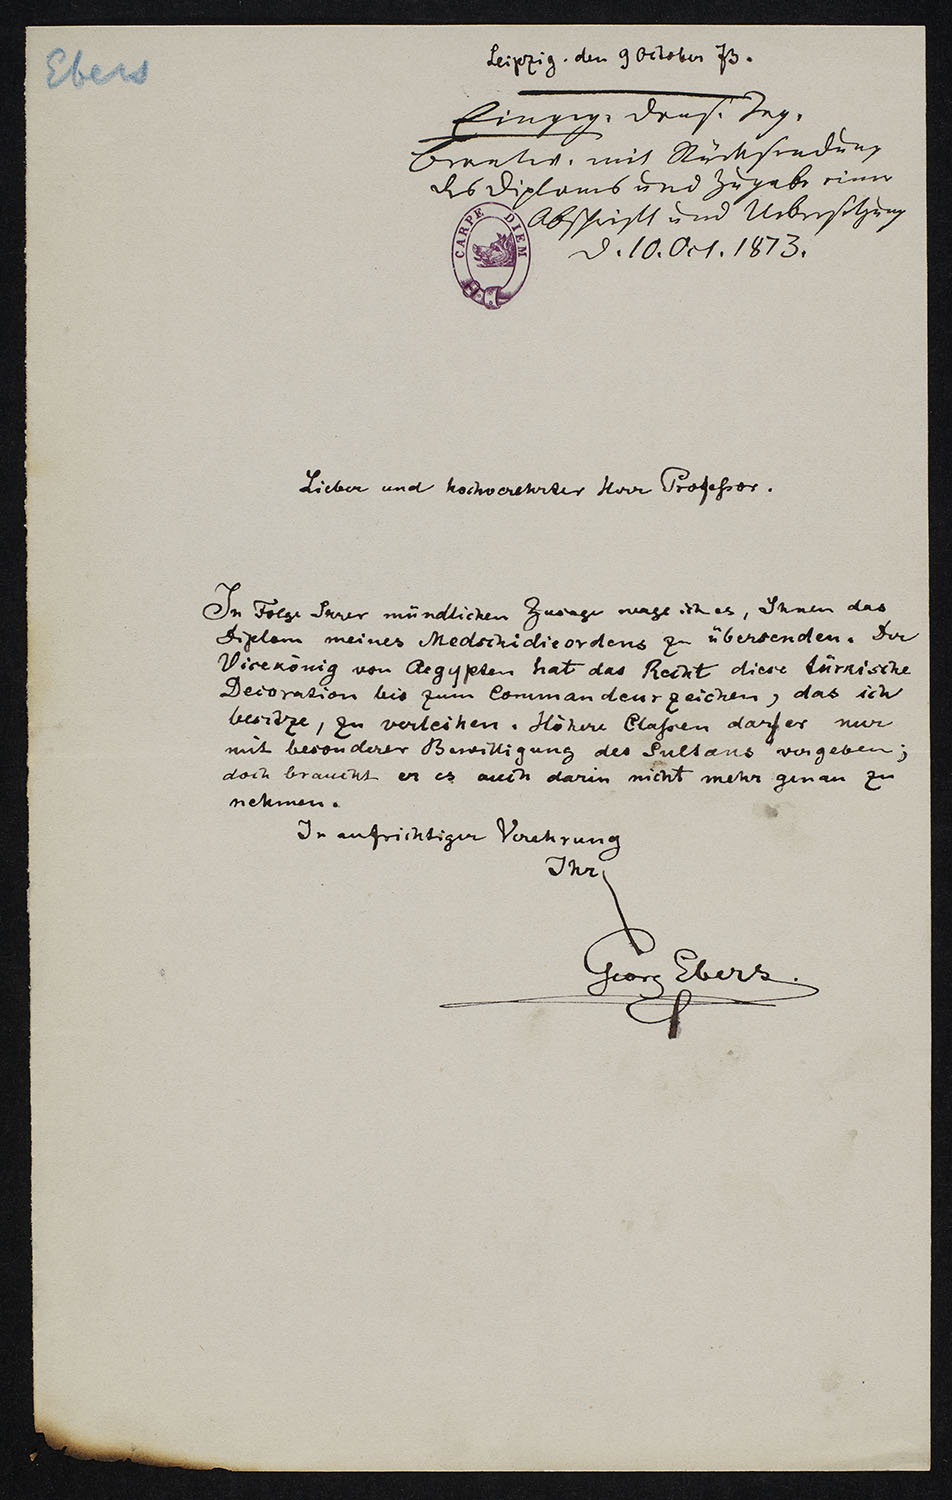 Ebers
Leipzig. den 9 October 73.
Eingeg. dens. Tag.
Beantw. mit Rücksendung
des Diploms und Zugabe einer
Abschrift und Uebersetzung
d. 10. Oct. 1873.
CARPE DIEM
Lieber und hochverehrter Herr Professor.
In Folge Ihrer mündlichen Zusage wage ich es, Ihnen das
Diplom meines Medschidieordens zu übersenden. Der
Vicekönig von Aegypten hat das Recht diese türkische
Decoration bis zum Commandeurzeichen, das ich
besitze, zu verleihen. Höhere Classen darf er nur
mit besonderer Bewilligung des Sultans vergeben;
doch braucht er es auch darin nicht mehr genau zu
nehmen.
In aufrichtiger Verehrung
Ihr
Georg Ebers.